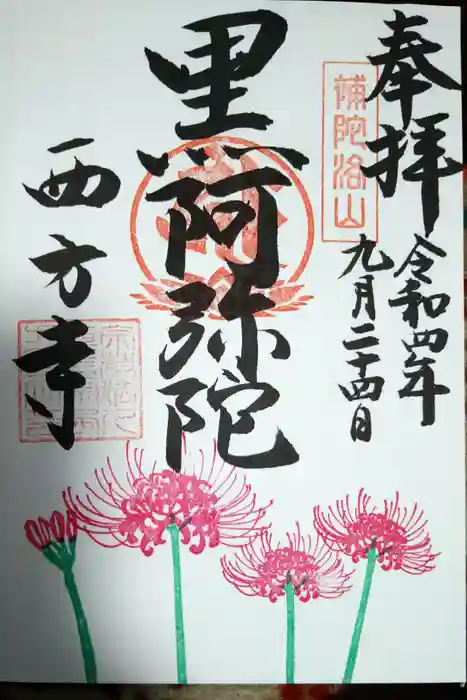 奉拝
令和四年
九月二十四日
補陀洛山
黒阿弥陀
西方寺